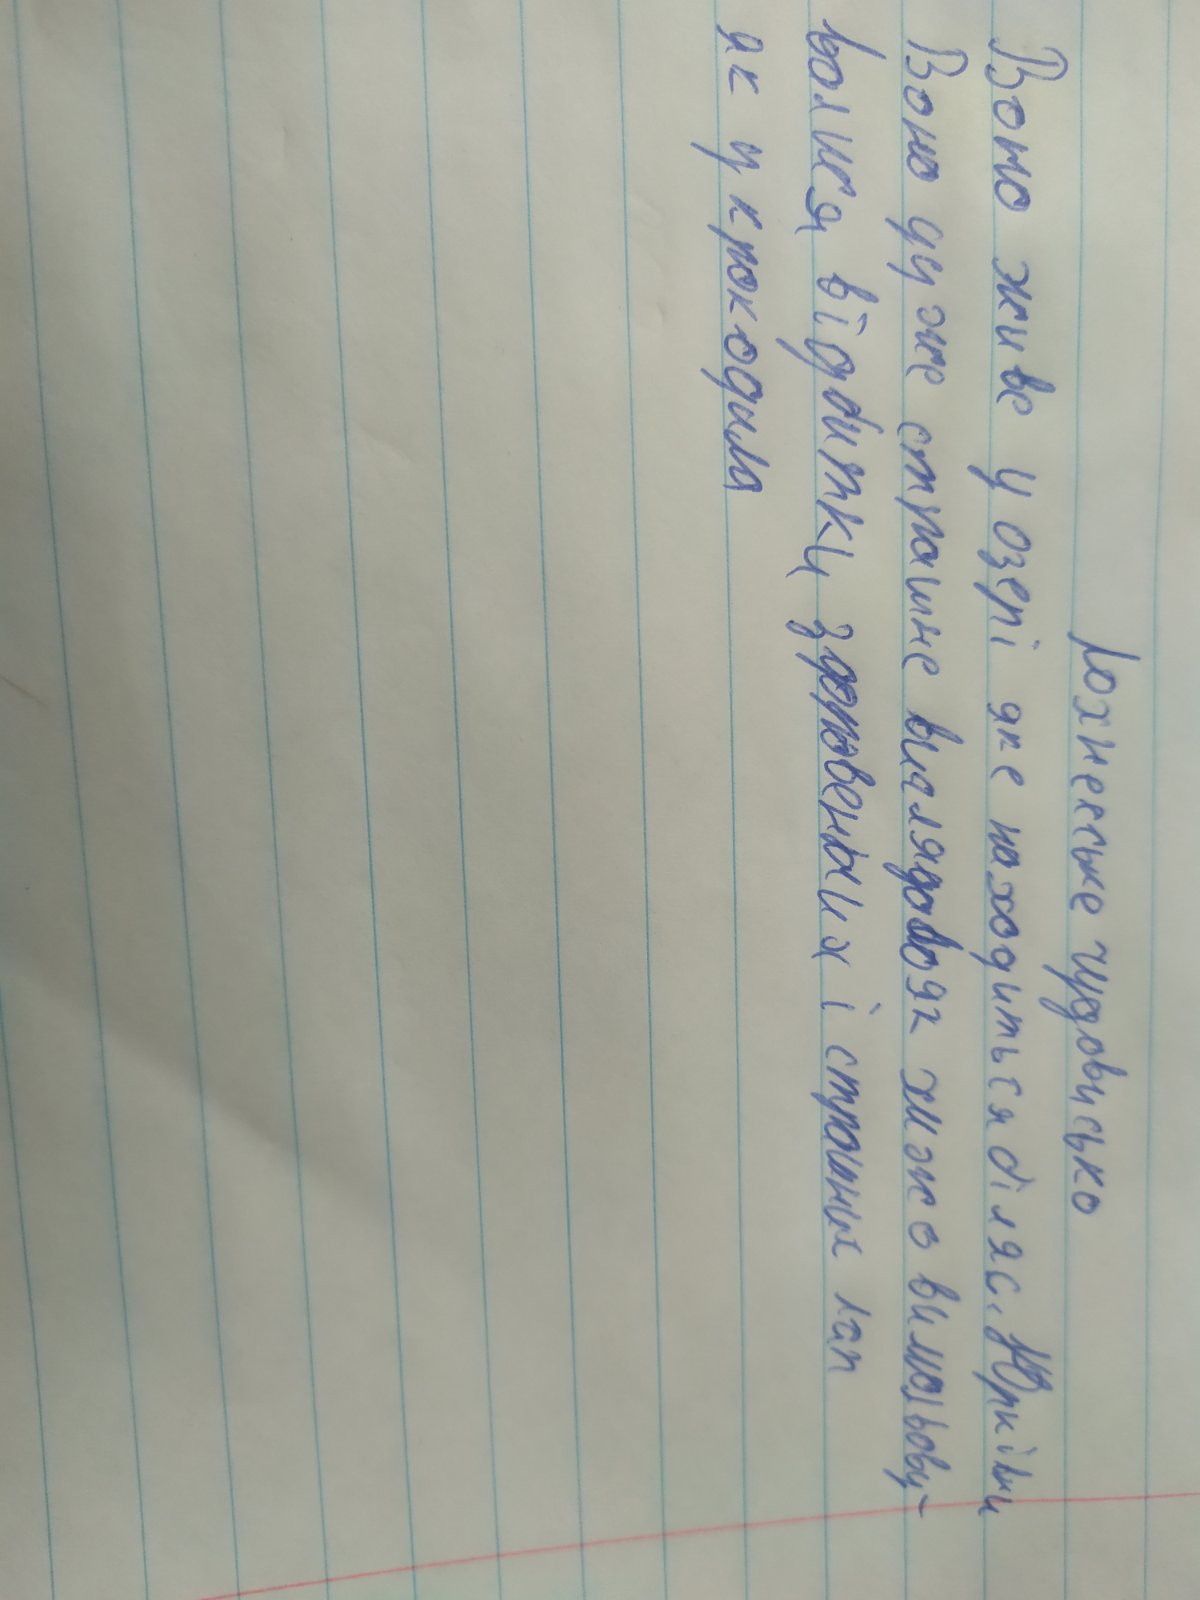 Лохнеське чудовисько
Воно живе у озері яке находиться біля с. Юрківки
Воно дуже страшне виглядало як хмжо вимальову-
волися відбитки здоровенных і страшних лап
як у крокодила